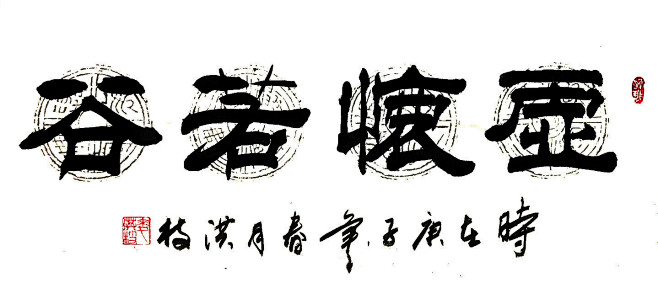 虚懷若谷
時在庚子年春月洪枝